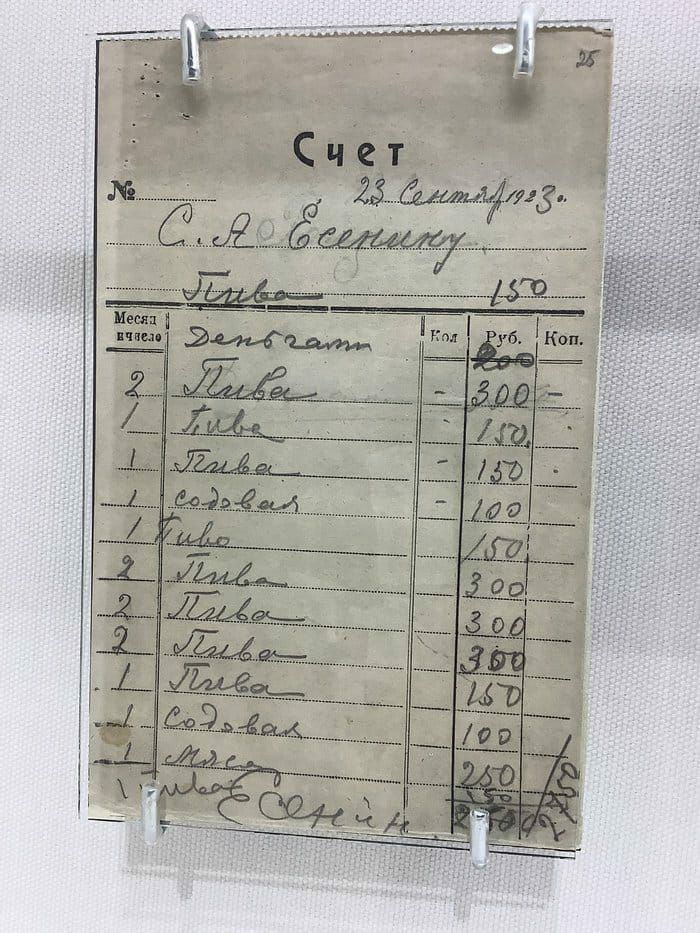 25
Счет
№ 23 Сентяб 1923 г.
С. А Есенину
Пива 150
Месяц и число Деньгами Кол Руб. Коп.
200
2 Пива - 300 -
1 Пива - 150
1 Пива - 150
1 содовая - 100
1 Пиво 150
2 Пива 300
2 Пива 300
2 Пива 300
1 Пива 150
1 Содовая 100
1 Мясо 250
1 Пива 150
Есенин